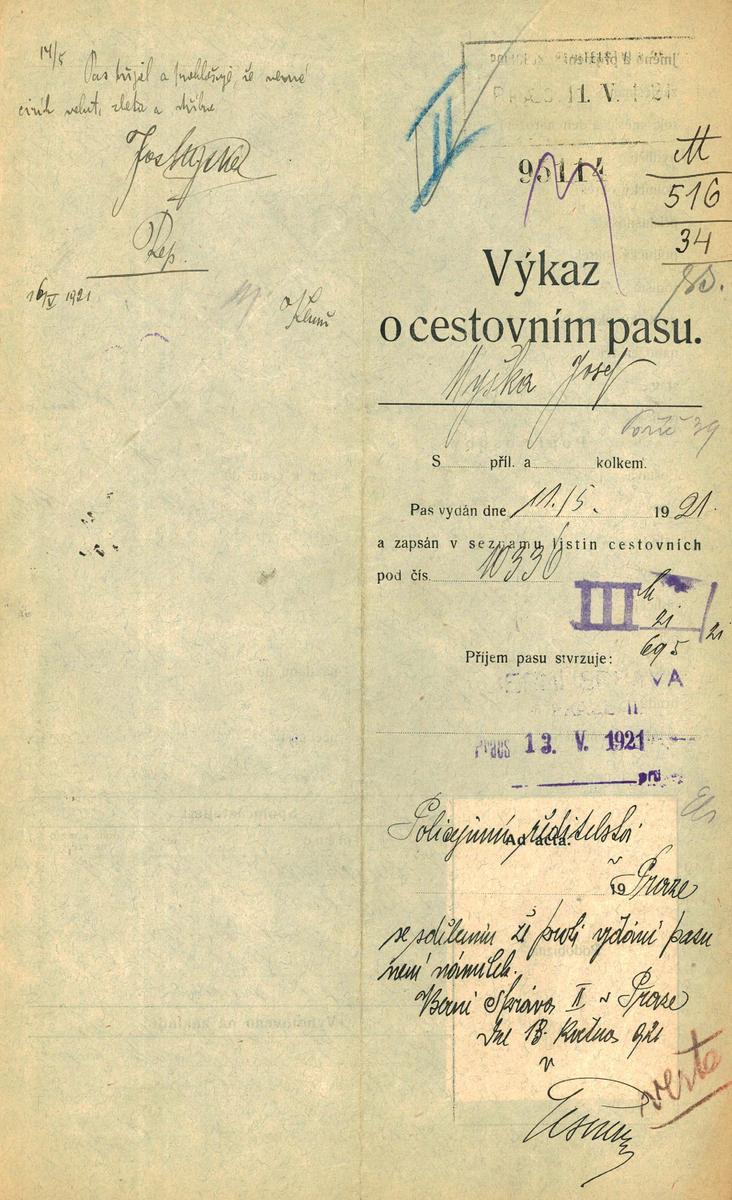 14/5
Pas přijal a prohlašuje, že nemá
cizích valut, zlata a stříbra
Rep.
16/V 1921
Praes. 11. V. 1921
II
95114
M
516
34
Výkaz
o cestovním pasu.
Myška Josef
Poříč 39
S příl. a kolkem.
Pas vydán dne 11./5. 1921.
a zapsán v seznamu listin cestovních
pod čís. 10336
III
M
21
695
21
Příjem pasu stvrzuje:
BERNÍ SPRÁVA
PRAZE II.
Praes 13. V. 1921
příl.
Policejnímu ředitelství
Ad acta.
v Praze
19
se sdělením že proti vydání pasu
není námitek.
Berní Správa II v Praze
dne 13. května 921
verte